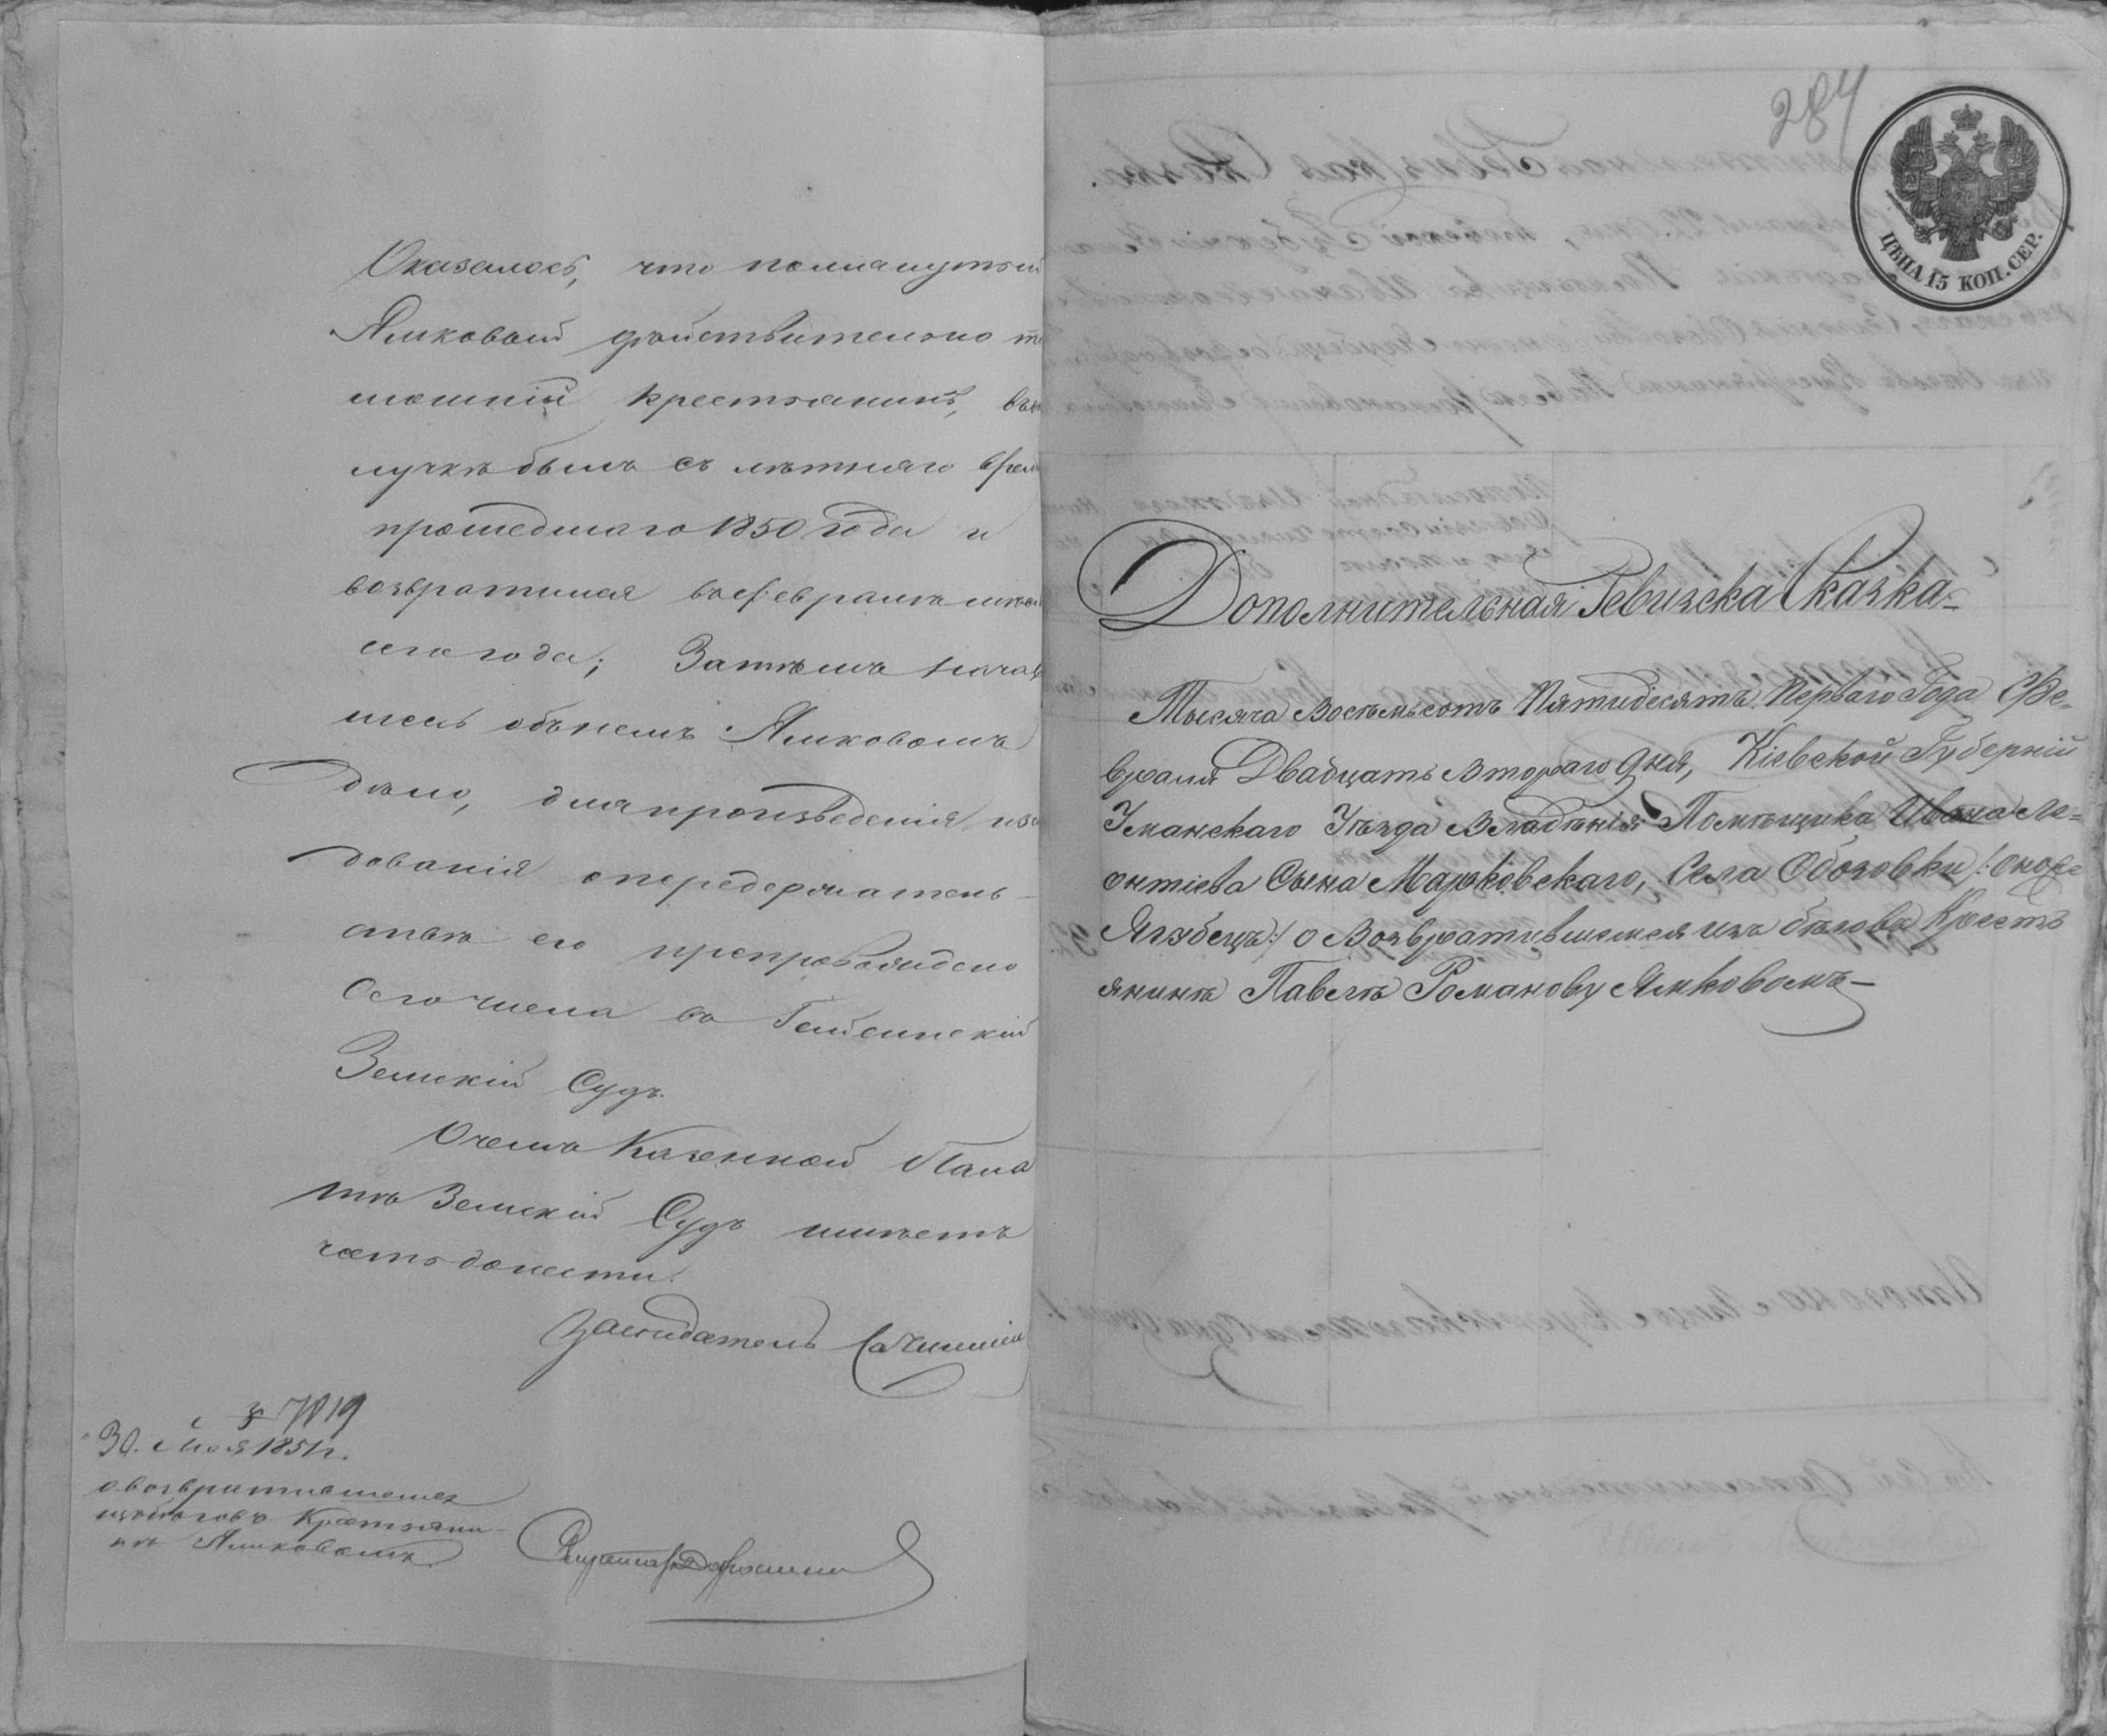 Оказалось, что помянутый
Ямковый дѣйствительно
крестьянинъ,
лучкѣ былъ съ лѣтняго
прошедшаго 1850 года и
возвратился въ февралѣ
сего года; Затѣмъ
объ немъ Ямковомъ
дѣло, для произведенія
дованія о передержатель-
ствѣ его препровождено
сего числа въ Гайсинскій
Земскій Судъ.
О чемъ Казенной Пала
тѣ Земскій Судъ имѣетъ
честь донести.
Засѣдатель
№ 7819
30. Мая 1851 г.
о возвратившемся
изъ бѣговъ Крестьяни-
нѣ Ямковомъ
284
ЦѢНА 15 КОП. СЕР.
Дополнительная Ревизска Сказка
Тысяча Восемьсотъ Пятидесятъ Перваго Года Фе-
враля Двадцать Втораго дня, Кіевской Губерній
Уманскаго Уѣзда Владѣнія Помѣщика Ивана Ле-
онтіева Сына Марковскаго, Села Обозовки /: оноре
Ягубецъ :/ о Возвратившемся изъ бѣговъ Крестъ
янинѣ Павелѣ Романову Ямковомъ